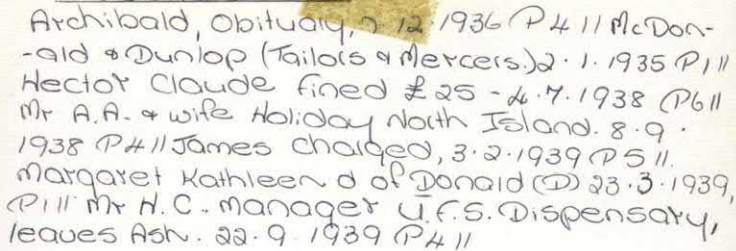 Archibald, Obituary, 7.12.1936 (P4 // McDon-
-ald & Dunlop (Tailors & Mercers.) 2.1.1935 (P1 //
Hector Claude fined £25 - 4.7.1938 (P6 //
Mr A.A. & wife Holiday North Island. 8.9.
1938 (P4 // James charged, 3.2.1939 (P5 //.
Margaret Kathleen d of Donald (D) 23.3.1939,
(P1 // Mr H.C. manager U.F.S. Dispensary,
leaves Ash. 22.9.1939 (P4 //